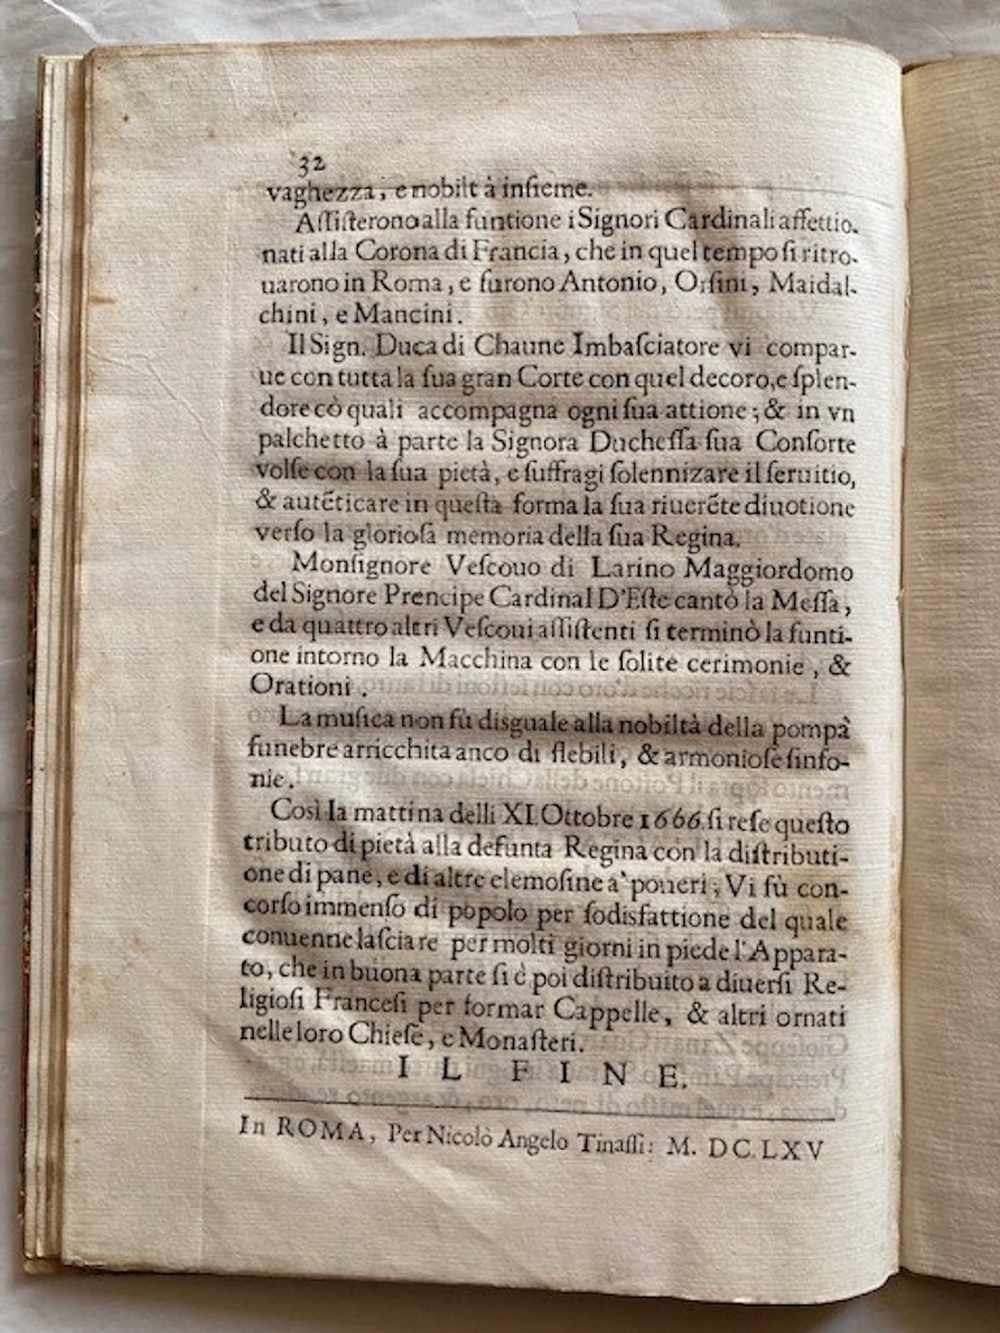 32
vaghezza, e nobiltà insieme.
Aſſiſterono alla funtione i Signori Cardinali affettio-
nati alla Corona di Francia, che in quel tempo ſi ritro-
uarono in Roma, e furono Antonio, Orſini, Maidal-
chini, e Mancini.
Il Sign. Duca di Chaune Imbaſciatore vi compar-
ue con tutta la ſua gran Corte con quel decoro, e ſplen-
dore cõ quali accompagna ogni ſua attione; & in vn
palchetto à parte la Signora Ducheſſa ſua Conſorte
volſe con la ſua pietà, e ſuffragi ſolennizare il ſeruitio,
& autẽticare in queſta forma la ſua riuerẽte diuotione
verſo la glorioſa memoria della ſua Regina.
Monſignore Veſcouo di Larino Maggiordomo
del Signore Prencipe Cardinal D'Eſte cantò la Meſſa,
e da quattro altri Veſcoui aſſiſtenti ſi terminò la funti-
one intorno la Macchina con le ſolite cerimonie, &
Orationi.
La muſica non fù diſguale alla nobiltà della pompa
funebre arricchita anco di flebili, & armonioſe ſinfo-
nie.
Così la mattina delli XI. Ottobre 1666. ſi reſe queſto
tributo di pietà alla defunta Regina con la diſtributi-
one di pane, e di altre elemoſine a' poueri; Vi fù con-
corſo immenſo di popolo per ſodisfattione del quale
conuenne laſciare per molti giorni in piede l'Appara-
to, che in buona parte ſi è poi diſtribuito a diuerſi Re-
ligioſi Franceſi per formar Cappelle, & altri ornati
nelle loro Chieſe, e Monaſteri.
IL FINE.
In ROMA, Per Nicolò Angelo Tinaſſi: M. DC. LXV